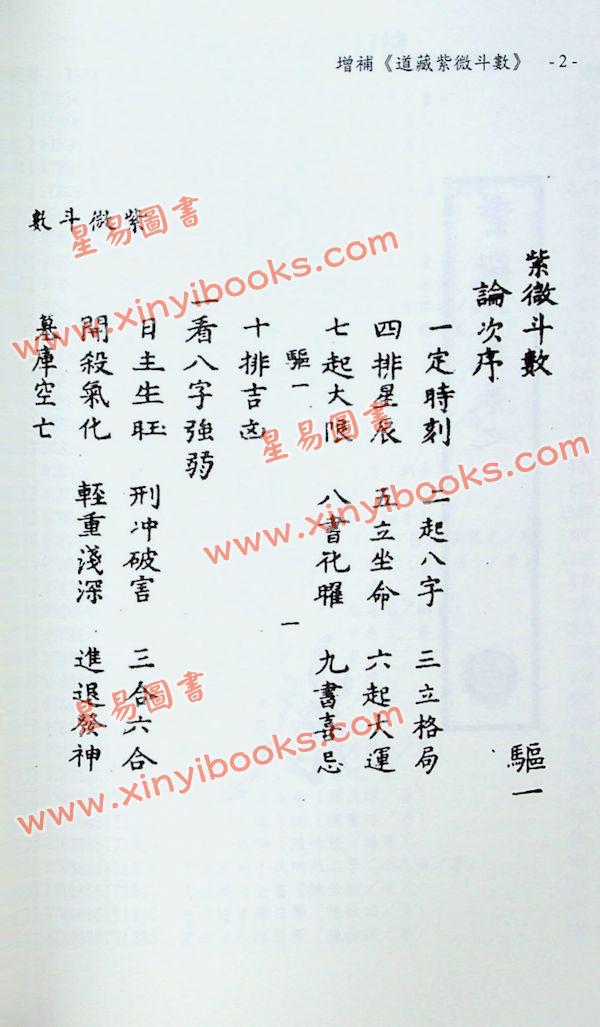 增補《道藏紫微斗數》 -2-
紫微斗數 驅一
論次序
一定時刻 二起八字 三立格局
四排星辰 五立坐命 六起大運
七起大限 八書化曜 九書喜忌
驅一 一
十排吉凶
一看八字強弱
日主生旺 刑冲破害 三合六合
開殺氣化 輕重淺深 進退發神
墓庫空亡
數斗微紫
星易圖書
www.xinyibooks.com
星易圖書
www.xinyibooks.com
星易圖書
www.xinyibooks.com